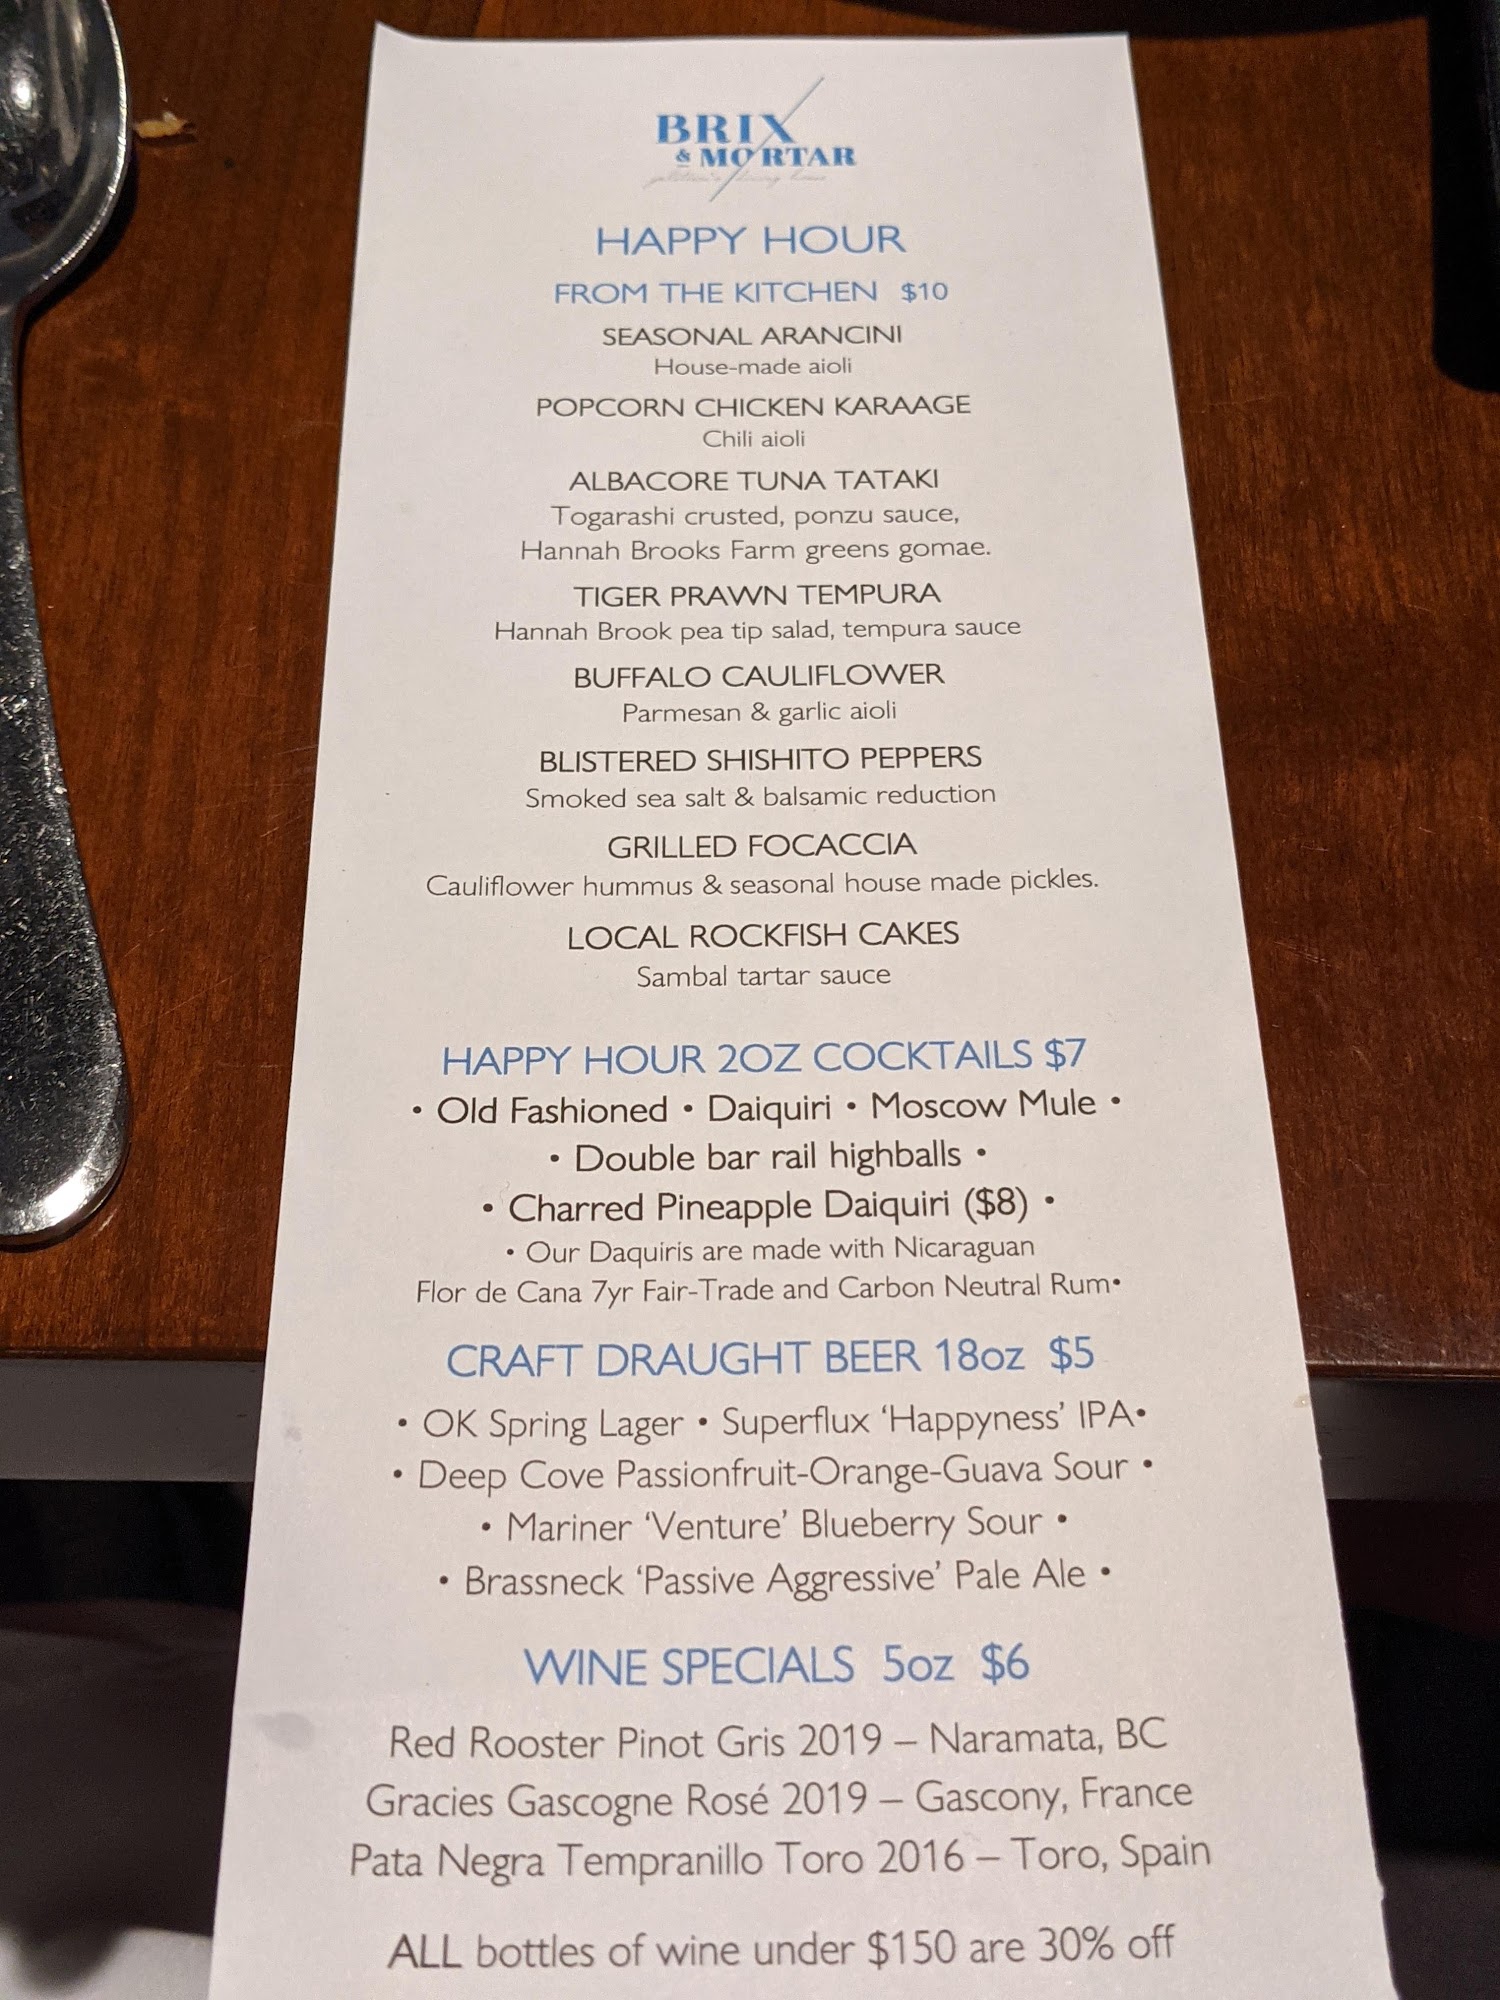 BRIX
& MORTAR
HAPPY HOUR
FROM THE KITCHEN $10
SEASONAL ARANCINI
House-made aioli
POPCORN CHICKEN KARAAGE
Chili aioli
ALBACORE TUNA TATAKI
Togarashi crusted, ponzu sauce,
Hannah Brooks Farm greens gomae.
TIGER PRAWN TEMPURA
Hannah Brook pea tip salad, tempura sauce
BUFFALO CAULIFLOWER
Parmesan & garlic aioli
BLISTERED SHISHITO PEPPERS
Smoked sea salt & balsamic reduction
GRILLED FOCACCIA
Cauliflower hummus & seasonal house made pickles.
LOCAL ROCKFISH CAKES
Sambal tartar sauce
HAPPY HOUR 2OZ COCKTAILS $7
• Old Fashioned • Daiquiri • Moscow Mule •
• Double bar rail highballs •
• Charred Pineapple Daiquiri ($8) •
• Our Daquiris are made with Nicaraguan
Flor de Cana 7yr Fair-Trade and Carbon Neutral Rum•
CRAFT DRAUGHT BEER 18oz $5
• OK Spring Lager • Superflux ‘Happyness’ IPA•
• Deep Cove Passionfruit-Orange-Guava Sour •
• Mariner ‘Venture’ Blueberry Sour •
• Brassneck ‘Passive Aggressive’ Pale Ale •
WINE SPECIALS 5oz $6
Red Rooster Pinot Gris 2019 – Naramata, BC
Gracies Gascogne Rosé 2019 – Gascony, France
Pata Negra Tempranillo Toro 2016 – Toro, Spain
ALL bottles of wine under $150 are 30% off